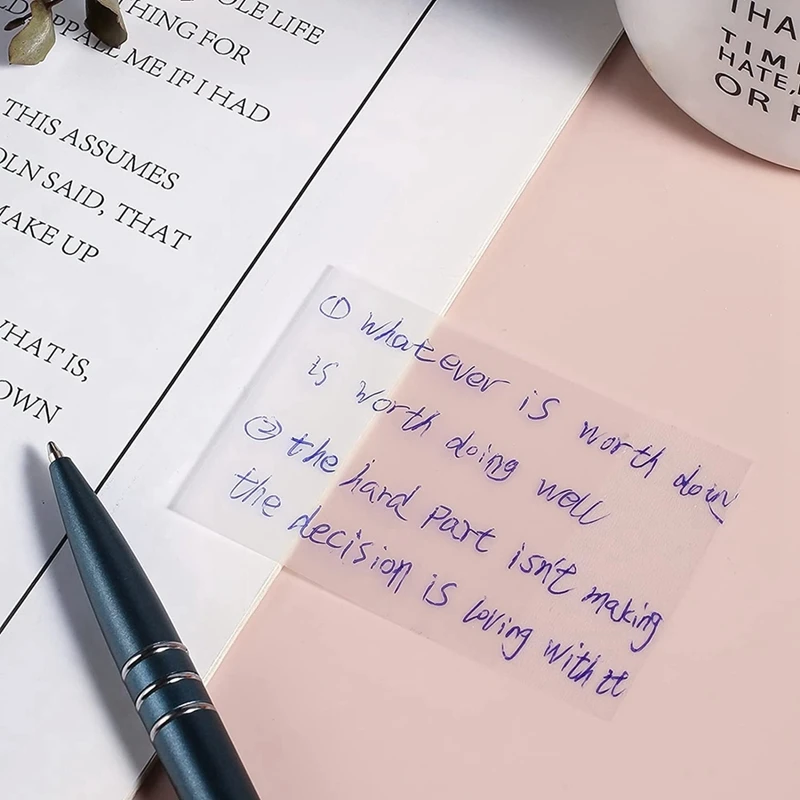 OLE LIFE
THING FOR
LD APPALL ME IF I HAD
THIS ASSUMES
OLN SAID, THAT
MAKE UP
WHAT IS,
OWN
THA
TIM
HATE,
OR
① Whatever is worth doing
is worth doing well
② the hard part isn't making
the decision is loving with it